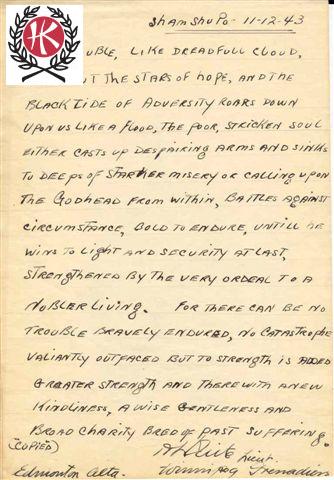 HK
Sham Shu Po - 11-12-43
UBLE, LIKE DREADFULL CLOUD,
T THE STARS OF HOPE, AND THE
BLACK TIDE OF ADVERSITY ROARS DOWN
UPON US LIKE A FLOOD, THE POOR, STRICKEN SOUL
EITHER CASTS UP DESPAIRING ARMS AND SINKS
TO DEEPS OF STARKER MISERY OR CALLING UPON
THE GODHEAD FROM WITHIN, BATTLES AGAINST
CIRCUMSTANCE, BOLD TO ENDURE, UNTILL HE
WINS TO LIGHT AND SECURITY AT LAST,
STRENGTHENED BY THE VERY ORDEAL TO A
NOBLER LIVING. FOR THERE CAN BE NO
TROUBLE BRAVELY ENDURED, NO CATASTROPHE
VALIANTLY OUTFACED BUT TO STRENGTH IS ADDED
GREATER STRENGTH AND THEREWITH A NEW
KINDLINESS, A WISE GENTLENESS AND
BROAD CHARITY BRED OF PAST SUFFERING.
(COPIED)
Lieut.
Edmonton Alta. Winnipeg Grenadiers